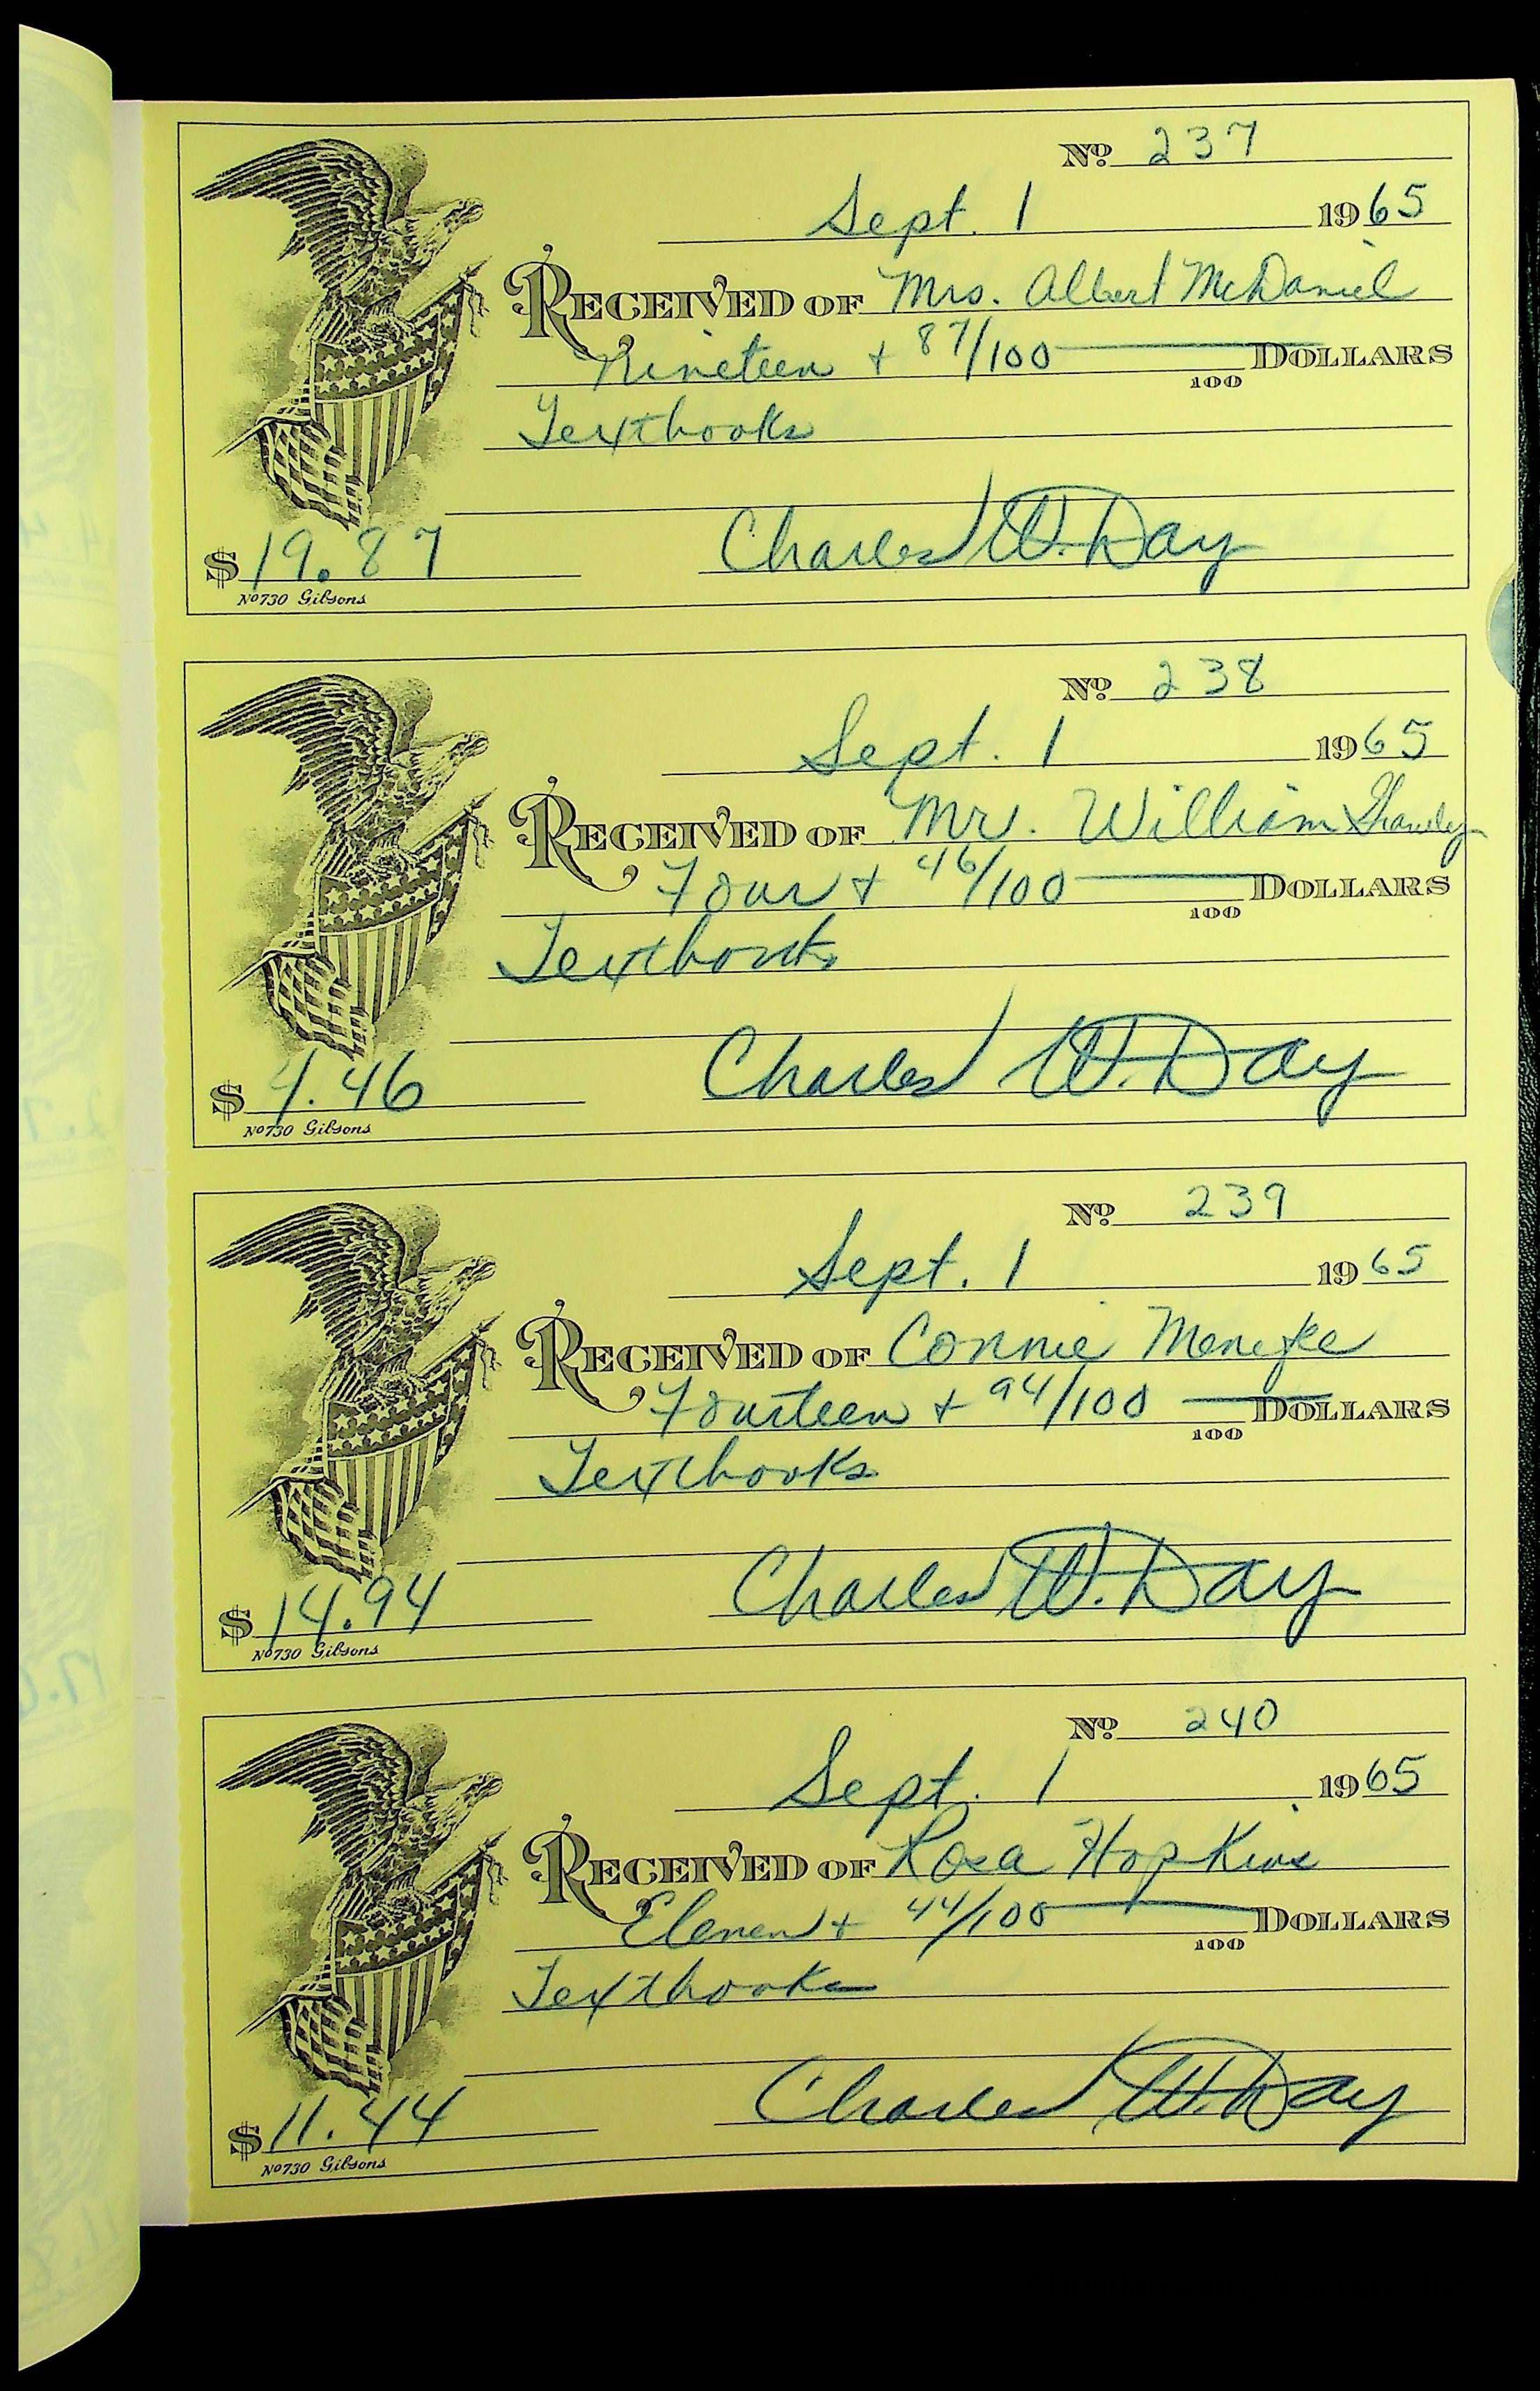 No 237
Sept. 1 1965
RECEIVED OF Mrs. Albert McDaniel
Nineteen + 87/100 DOLLARS
100
Textbooks
Charles W. Day
$ 19.87
No 730 Gibsons
No 238
Sept. 1 1965
RECEIVED OF Mr. William
Four + 46/100 DOLLARS
100
Textbooks
Charles W. Day
$ 4.46
No 730 Gibsons
No 239
Sept. 1 1965
RECEIVED OF Connie
Fourteen + 94/100 DOLLARS
100
Textbooks
Charles W. Day
$ 14.94
No 730 Gibsons
No 240
Sept. 1 1965
RECEIVED OF Rosa Hopkins
Eleven + 44/100 DOLLARS
100
Textbooks
Charles W. Day
$ 11.44
No 730 Gibsons